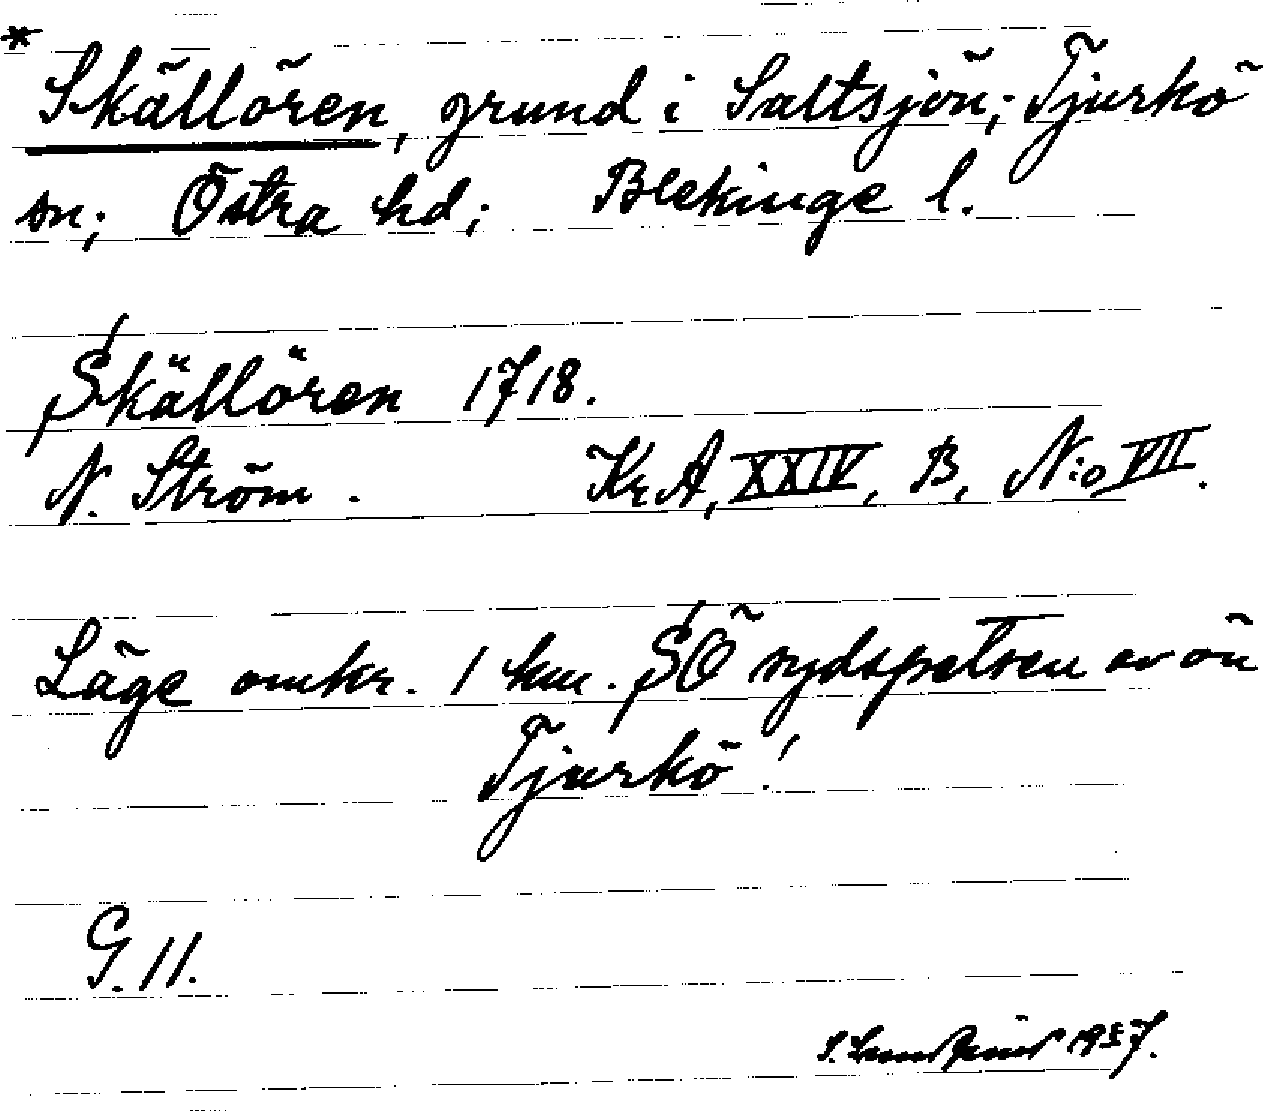 * Skällören, grund i Saltsjön; Tjurkö
sn; Östra hd; Blekinge l.
Skällören 1718.
N. Ström. Kr.A, XXIV, B, N:o VII.
Läge omkr. 1 km. SÖ sydspetsen av ön
Tjurkö!
G. 11.
S. 1957.